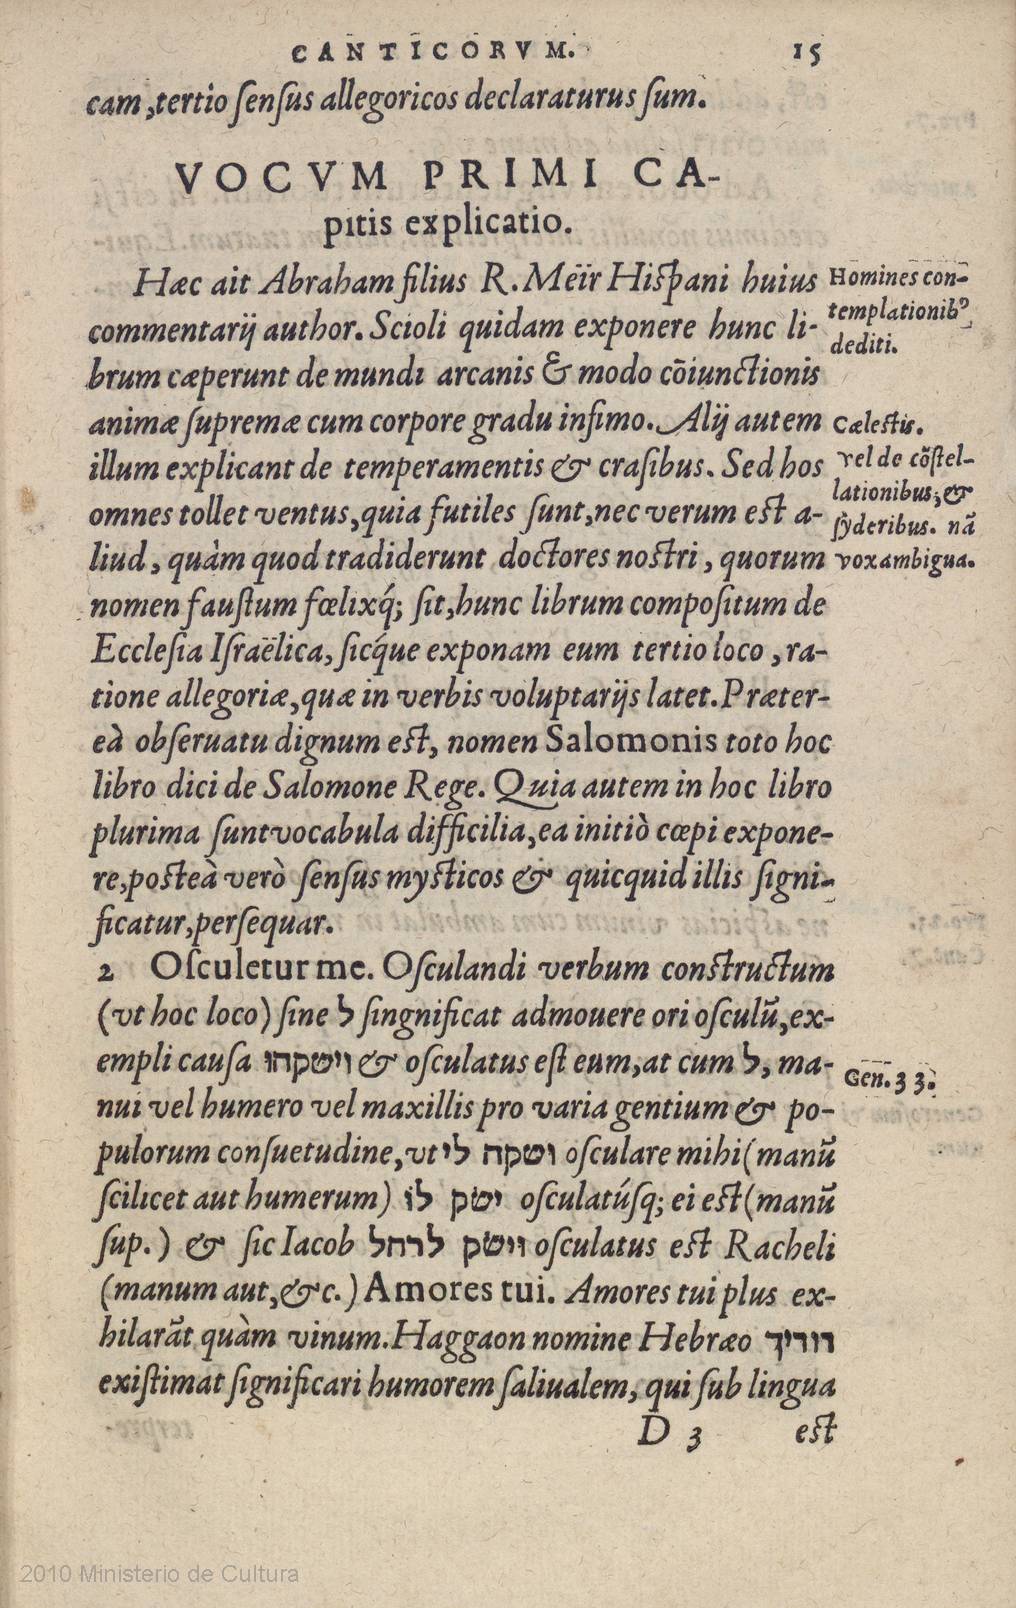 CANTICORVM. 15
cam, tertio ſenſus allegoricos declaraturus ſum.
VOCVM PRIMI CA-
pitis explicatio.
Hæc ait Abraham filius R. Meïr Hiſpani huius
commentarij author. Scioli quidam exponere hunc li-
brum cæperunt de mundi arcanis & modo cōiunctionis
animæ ſupremæ cum corpore gradu infimo. Alij autem
illum explicant de temperamentis & craſibus. Sed hos
omnes tollet ventus, quia futiles ſunt, nec verum eſt a-
liud, quàm quod tradiderunt doctores noſtri, quorum
nomen fauſtum fœlixq́; ſit, hunc librum compoſitum de
Eccleſia Iſraëlica, ſicq́ue exponam eum tertio loco, ra-
tione allegoriæ, quæ in verbis voluptarijs latet. Præter-
eà obſeruatu dignum eſt, nomen Salomonis toto hoc
libro dici de Salomone Rege. Quia autem in hoc libro
plurima ſunt vocabula difficilia, ea initiò cœpi expone-
re, poſteà verò ſenſus myſticos & quicquid illis ſigni-
ficatur, perſequar.
Homines con-
templationibꝰ
dediti.
Cæleſtis.
vel de cōſtel-
lationibus, &
ſyderibus. nā
vox ambigua.
2 Oſculetur me. Oſculandi verbum conſtructum
(vt hoc loco) ſine ל ſingnificat admouere ori oſculū, ex-
empli causa וישקהו & oſculatus eſt eum, at cum ל, ma-
nui vel humero vel maxillis pro varia gentium & po-
pulorum conſuetudine, vt ושקה לי oſculare mihi (manū
ſcilicet aut humerum) ישק לו oſculatúſq; ei eſt (manū
ſup.) & ſic Iacob וישק לרחל oſculatus eſt Racheli
(manum aut, &c.) Amores tui. Amores tui plus ex-
hilarāt quàm vinum. Haggaon nomine Hebræo דודיך
exiſtimat ſignificari humorem ſaliualem, qui ſub lingua
Gen. 33.
D 3 eſt
2010 Ministerio de Cultura